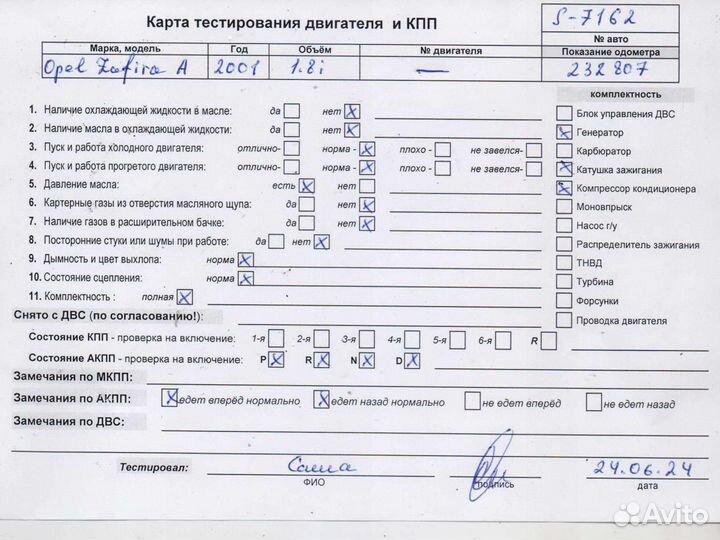 Карта тестирования двигателя и КПП
S-7162
№ авто
Марка, модель Год Объём № двигателя Показание одометра
Opel Zafira A 2001 1.8i — 232 807
комплектность
1. Наличие охлаждающей жидкости в масле: да нет X
Блок управления ДВС
2. Наличие масла в охлаждающей жидкости: да нет X
X Генератор
3. Пуск и работа холодного двигателя: отлично- норма - X плохо - не завелся-
Карбюратор
4. Пуск и работа прогретого двигателя: отлично- норма - X плохо - не завелся-
X Катушка зажигания
5. Давление масла: есть X нет
X Компрессор кондиционера
6. Картерные газы из отверстия масляного щупа: да нет X
Моновпрыск
7. Наличие газов в расширительном бачке: да нет X
Насос г/у
8. Посторонние стуки или шумы при работе: да нет X
Распределитель зажигания
9. Дымность и цвет выхлопа: норма X
ТНВД
10. Состояние сцепления: норма X
Турбина
11. Комплектность : полная X
Форсунки
Снято с ДВС (по согласованию!):
Проводка двигателя
Состояние КПП - проверка на включение: 1-я 2-я 3-я 4-я 5-я 6-я R
Состояние АКПП - проверка на включение: P X R X N X D X
Замечания по МКПП:
Замечания по АКПП: X едет вперёд нормально X едет назад нормально не едет вперёд не едет назад
Замечания по ДВС:
Тестировал: Саша 24.06.24
ФИО подпись дата
Avito